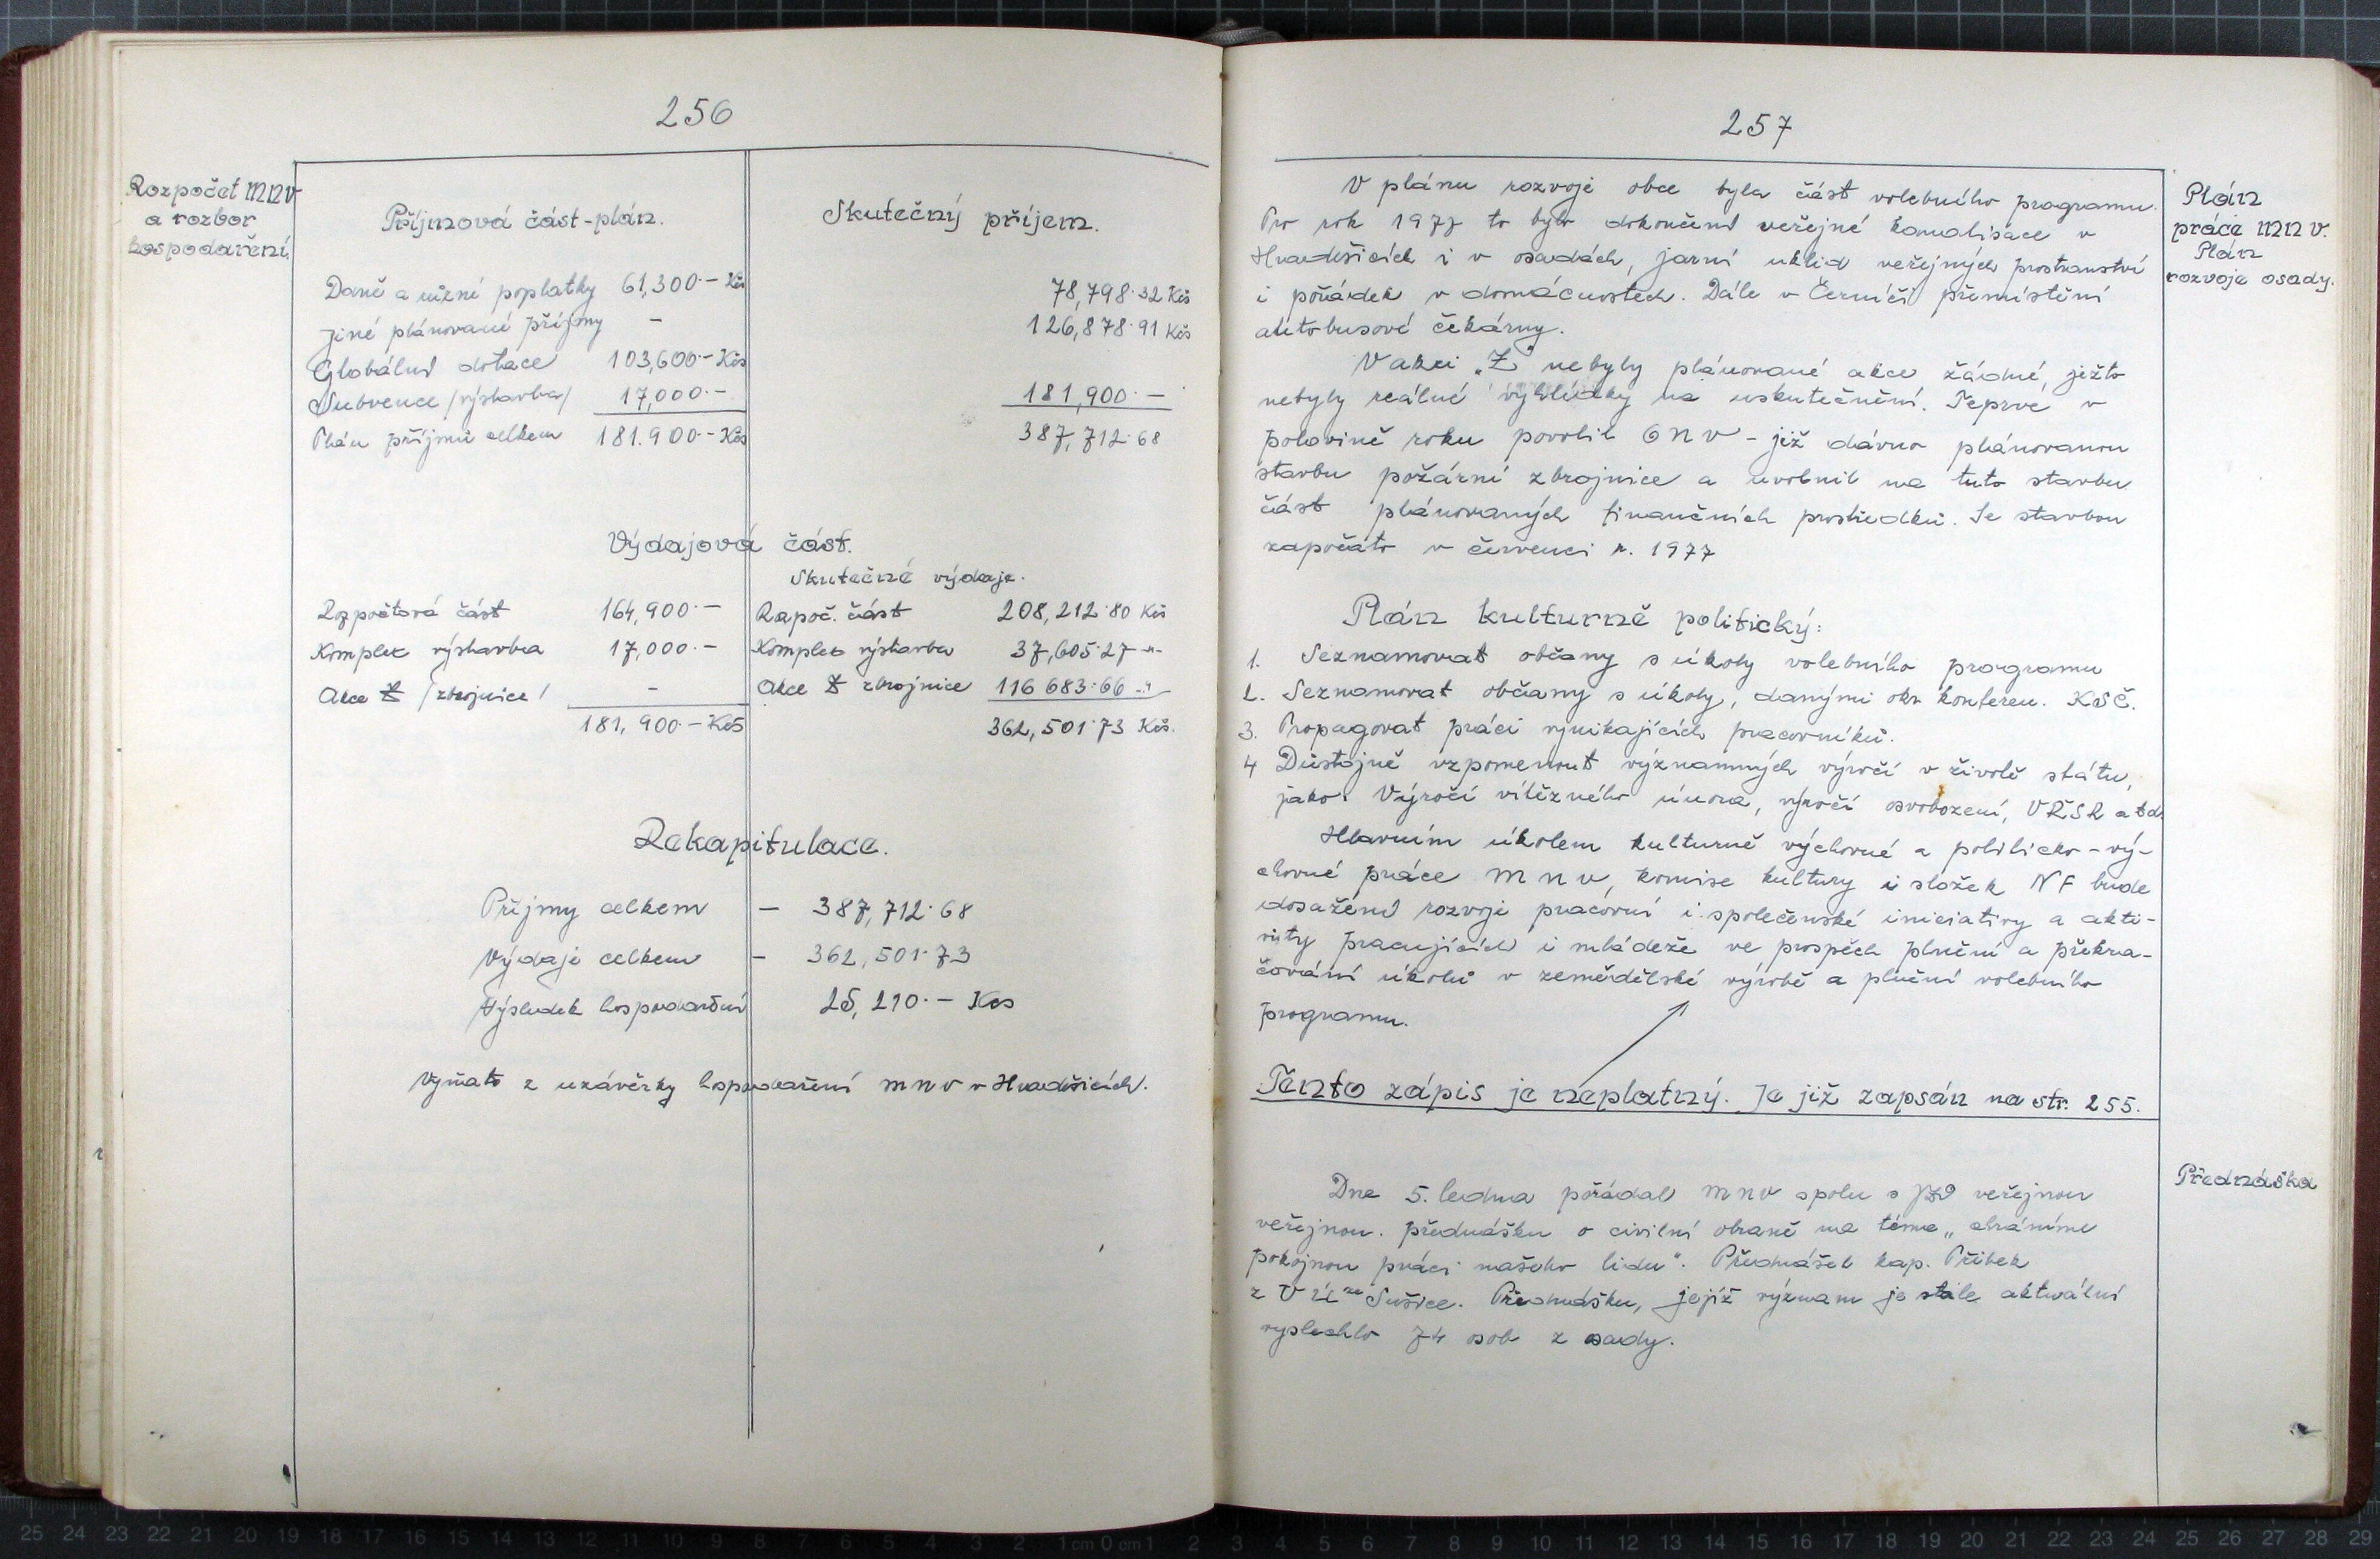 256
Rozpočet MNV
a rozbor
hospodaření.
Příjmová část - plán.
Skutečný příjem.
Daně a různé poplatky 61,300.- Kčs
78,798.32 Kčs
jiné plánované příjmy -
126,878.91 Kčs
Globální dotace 103,600.- Kčs
Subvence /výstavba/ 17,000.-
181,900.-
Plán příjmů celkem 181.900.- Kčs
387,712.68
Výdajová část.
Skutečné výdaje.
Rozpočtová část 164,900.- Rozpoč. část 208,212.80 Kčs
Komplex výstavba 17,000.- Komplex výstavba 37,605.27 -"-
Akce Z /zbrojnice/ - Akce Z zbrojnice 116 683.66 -"-
181,900.- Kčs
362,501.73 Kčs.
Rekapitulace.
Příjmy celkem - 387,712.68
Výdaje celkem - 362,501.73
Výsledek hospodaření 25,210.- Kčs
Vyňato z uzávěrky hospodaření MNV v Hradešicích.
257
Plán
práce MNV.
Plán
rozvoje osady.
V plánu rozvoje obce byla část volebního programu.
Pro rok 1977 to bylo dokončení veřejné kanalisace v
Hradešicích i v osadách, jarní úklid veřejných prostranství
i pořádek v domácnostech. Dále v Černíči přemístění
autobusové čekárny.
V akci „Z" nebyly plánované akce žádné, ježto
nebyly reálné vyhlídky na uskutečnění. Teprve v
polovině roku povolil ONV - již dávno plánovanou
stavbu požární zbrojnice a uvolnil na tuto stavbu
část plánovaných finančních prostředků. Se stavbou
započato v červenci r. 1977
Plán kulturně politický:
1. Seznamovat občany s úkoly volebního programu
2. Seznamovat občany s úkoly, danými okr. konferen. KSČ.
3. Propagovat práci vynikajících pracovníků.
4 Důstojně vzpomenout významných výročí v životě státu,
jako: Výročí vítězného února, výročí osvobození, VŘSR atd.
Hlavním úkolem kulturně výchovné a politicko-vý-
chovné práce MNV, komise kultury i složek NF bude
dosažení rozvoje pracovní i společenské iniciativy a akti-
vity pracujících i mládeže ve prospěch plnění a překra-
čování úkolů v zemědělské výrobě a plnění volebního
programu.
Tento zápis je neplatný. Je již zapsán na str. 255.
Přednáška
Dne 5. ledna pořádal MNV spolu s JZD veřejnou
veřejnou. přednášku o civilní obraně na téma „chráníme
pokojnou práci našeho lidu". Přednášel kap. Přibek
z VÚ ze Sušice. Přednášku, jejíž význam je stále aktuální
vyslechlo 74 osob z osady.